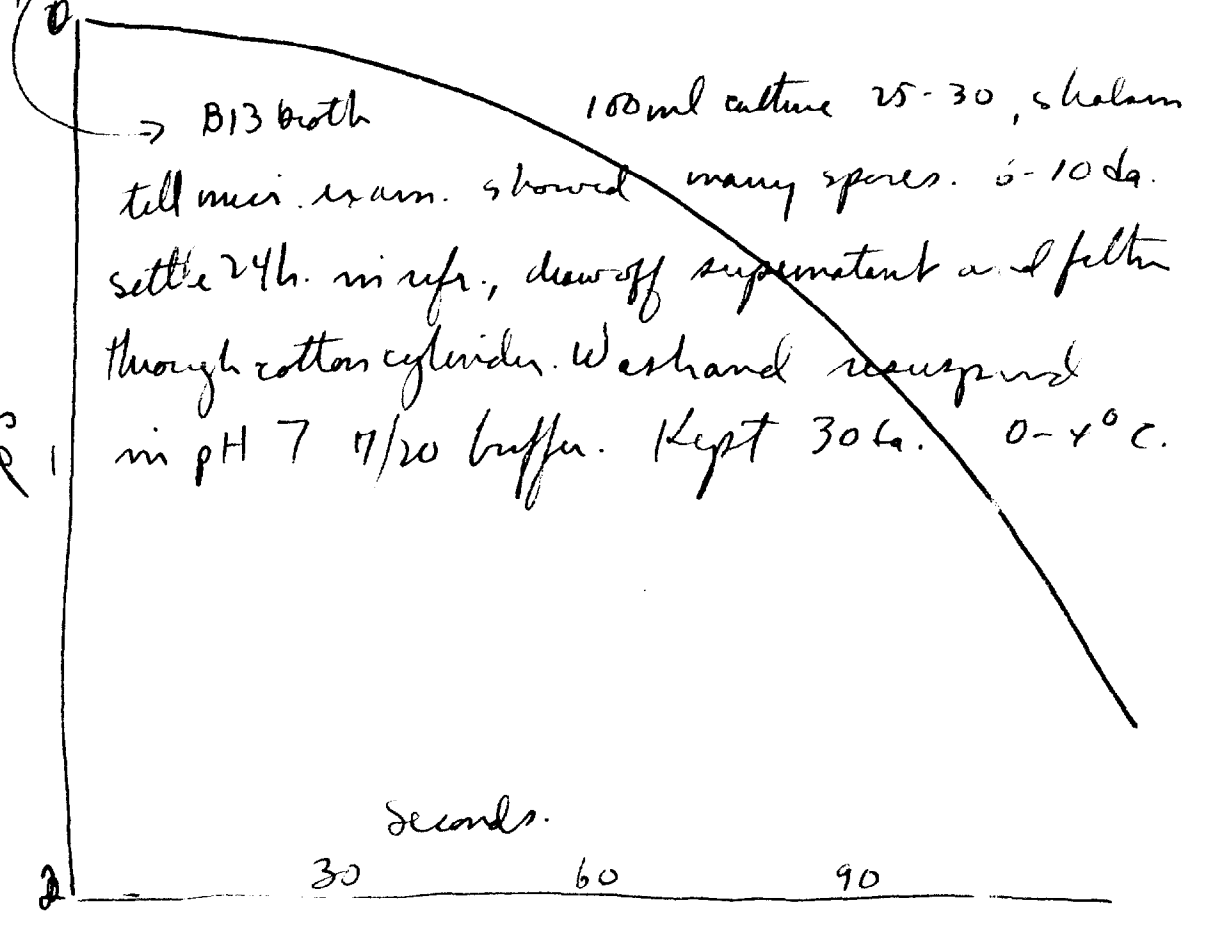 0
B13 broth 100 ml culture 25-30, shaken
till micr. exam. showed many spores. 6-10 da.
settle 24h. in refr., draw off supernatant and filter
through cotton cylinder. Wash and resuspend
in pH 7 M/20 buffer. Kept 30 da. 0-4° C.
1
Seconds.
30 60 90
2